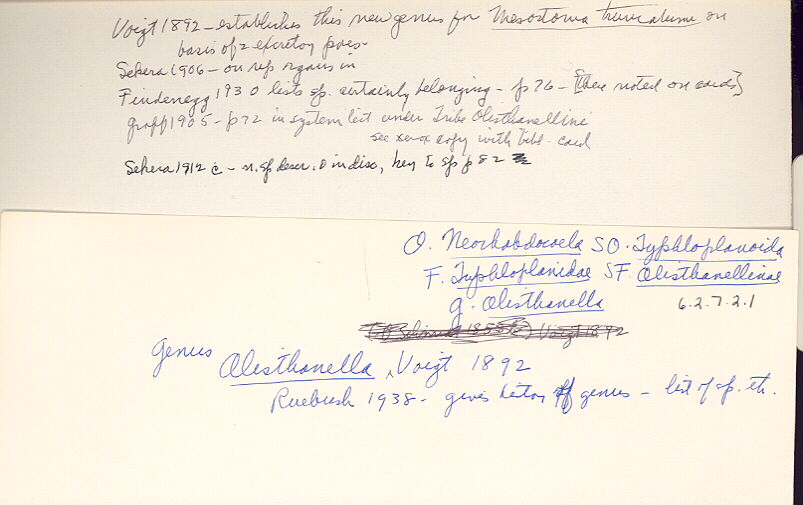 Voigt 1892 - establishes this new genus for Mesostoma truncatum on
basis of 2 excretory pores
Sekera 1906 - on rep organs in
Findenegg 1930 lists sp. certainly belonging - p 76 - [these noted on cards]
Graff 1905 - p 72 in system list under Tribe Olisthanellini
see xerox copy with bibl. card
Sekera 1912 c - n. sp descr. & in disc, key to sp p 82
O. Neorhabdocoela SO. Typhloplanoida
F. Typhloplanidae SF. Olisthanellinae
g. Olisthanella 6.2.7.2.1
Voigt 1892
Genus Olisthanella , Voigt 1892
Ruebush 1938 - gives history of genus - list of sp. etc.